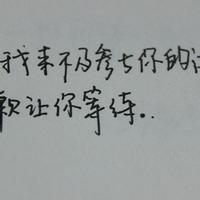 我来不及参与你的
就让你等待..